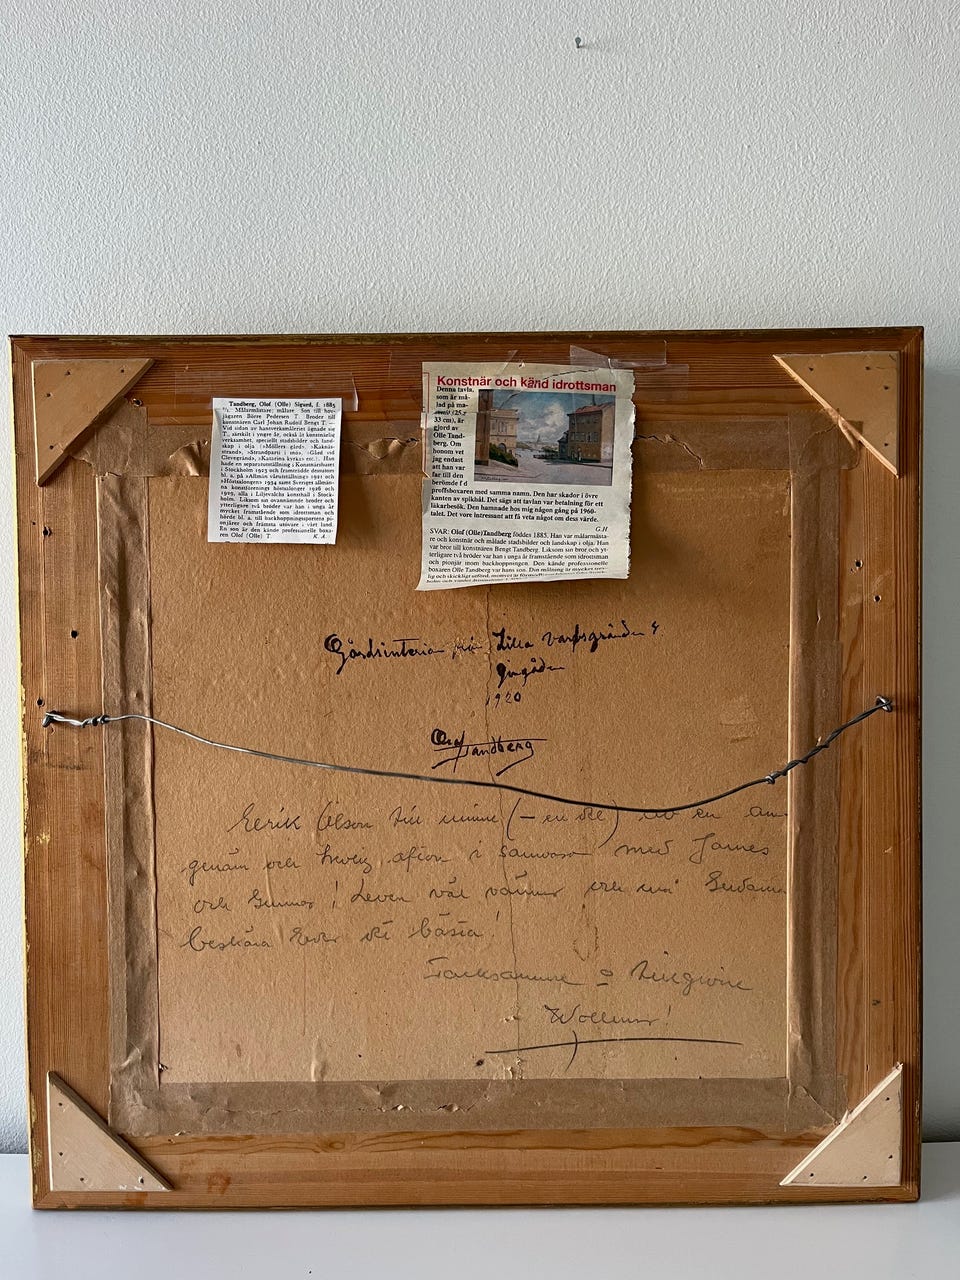 Tandberg, Olof (Olle) Sigurd, f. 1885
Målarmästare; målare. Son till hov-
jägaren Börre Pedersen T. Broder till
konstnären Carl Johan Rudolf Bengt T. —
Vid sidan av hantverksmåleriet ägnade sig
T., särskilt i yngre år, också åt konstnärlig
verksamhet, speciellt stadsbilder och land-
skap i olja (»Möllers gård», »Kaknäs-
strand», »Strandparti i snö», »Gård vid
Clevegränd», »Katarina kyrka» etc.). Han
hade en separatutställning i Konstnärshuset
i Stockholm 1925 och framträdde dessutom
bl. a. på »Allmän vårutställning» 1921 och
»Höstsalongen» 1934 samt Sveriges allmän-
na konstförenings höstsalonger 1926 och
1929, alla i Liljevalchs konsthall i Stock-
holm. Liksom sin ovannämnde broder och
ytterligare två bröder var han i unga år
mycket framstående som idrottsman och
hörde bl. a. till backhoppningssportens pi-
onjärer och främsta utövare i vårt land.
En son är den kände professionelle boxa-
ren Olof (Olle) T. K. A.
Konstnär och känd idrottsman
Denna tavla,
som är må-
lad på ma-
(25 x
33 cm), är
gjord av
Olle Tand-
berg. Om
honom vet
jag endast
att han var
far till den
berömde f d
proffsboxaren med samma namn. Den har skador i övre
kanten av spikhål. Det sägs att tavlan var betalning för ett
läkarbesök. Den hamnade hos mig någon gång på 1960-
talet. Det vore intressant att få veta något om dess värde.
G.H
SVAR: Olof (Olle) Tandberg föddes 1885. Han var målarmästa-
re och konstnär och målade stadsbilder och landskap i olja. Han
var bror till konstnären Bengt Tandberg. Liksom sin bror och yt-
terligare två bröder var han i unga år framstående som idrottsman
och pionjär inom backhoppningen. Den kände professionelle
boxaren Olle Tandberg var hans son. Din målning är mycket trev-
lig och skickligt utförd, motivet är
Gårdsinteriör från Lilla varfsgränden 4
1920
Olof Tandberg
Erik Olson till minne (— en del) av en an-
genäm och trevlig afton i samvaro med James
och Gunnar! Leven väl vänner och må Gudarna
beskära Eder det bästa!
Tacksamme o tillgivne